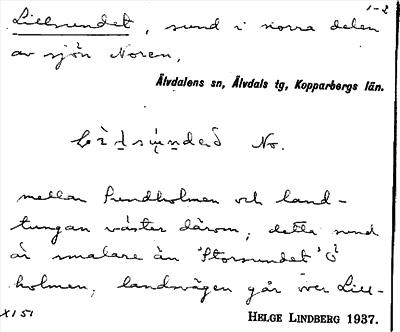 1-2
Lillsundet, sund i norra delen
av sjön Noren,
Älvdalens sn, Älvdals tg, Kopparbergs län.
No.
mellan Sundholmen och land-
tungan väster därom; detta sund
är smalare än 'Storsundet' Ö
holmen; landsvägen går över Lill-
X151
HELGE LINDBERG 1937.